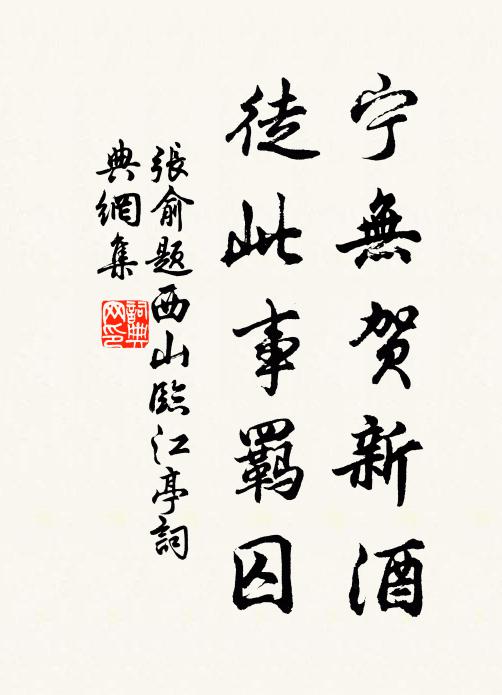 宁無贺新酒
徒此事羁囚
張俞題西山臨江亭詞
典網集
詞典
网印